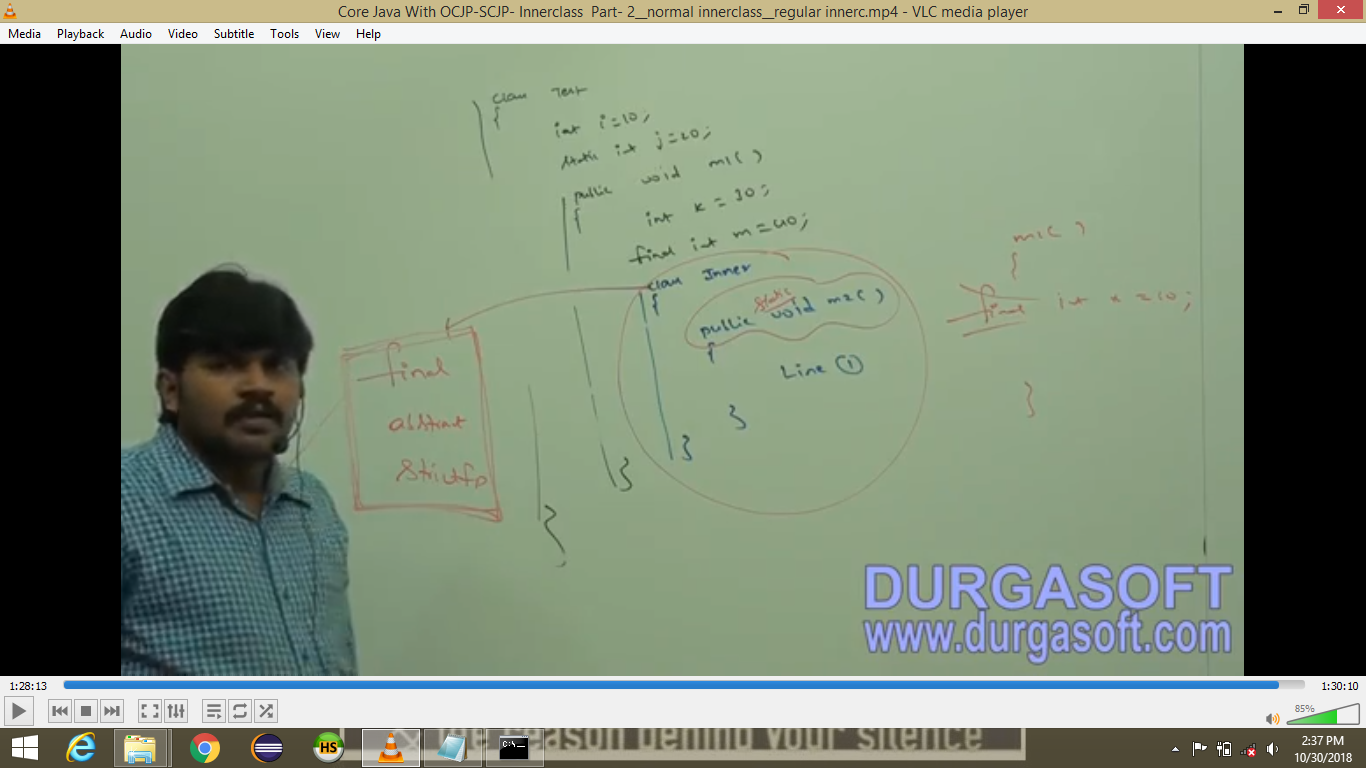 Core Java With OCJP-SCJP- Innerclass Part- 2__normal innerclass__regular innerc.mp4 - VLC media player
Media Playback Audio Video Subtitle Tools View Help
class Test
{
int i=10;
static int j=20;
public void m1( )
{
int k = 30;
final int m=40;
class Inner
{
static
public void m2( )
{
Line 1
}
}
}
}
final
abstract
strictfp
m1( )
{
final int x = 10;
}
DURGASOFT
www.durgasoft.com
1:28:13
1:30:10
85%
HS
Reason behind your silence
C:\
2:37 PM
10/30/2018